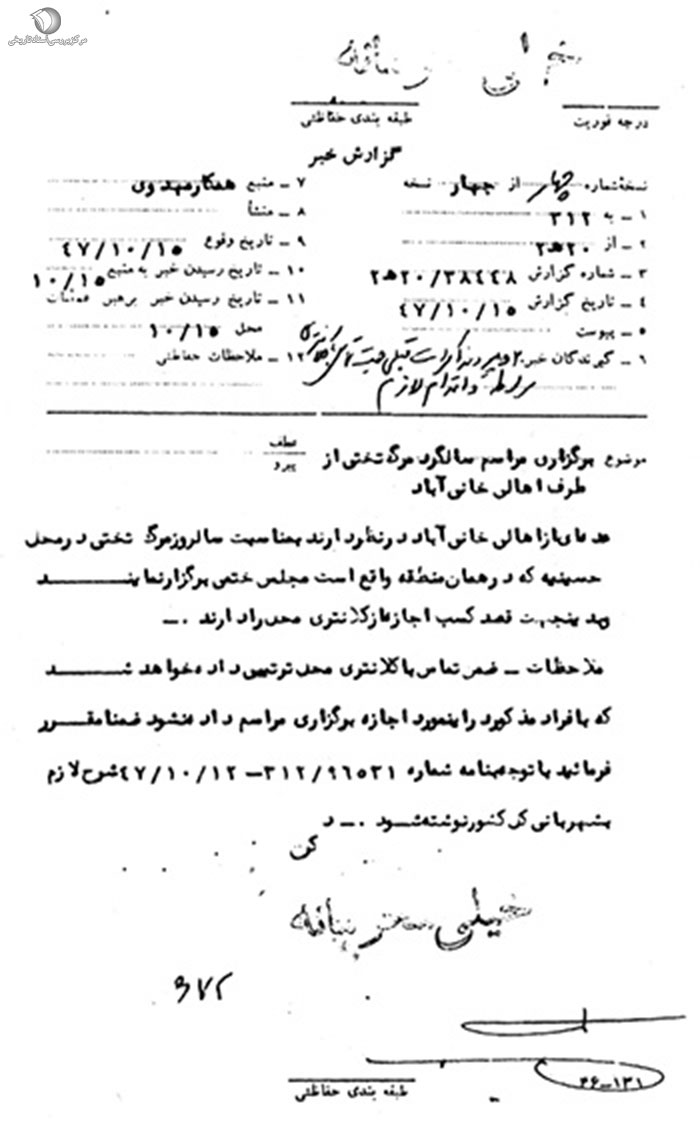 مرکز بررسی اسناد تاریخی
خیلی محرمانه
درجه فوریت
طبقه بندی حفاظتی
گزارش خبر
نسخهٔ شماره چهار از چهار نسخه
۱ ـ به ۳۱۲
۲ ـ از ۲۰هـ۲
۳ ـ شماره گزارش ۲۰/۳۸۴۴۸هـ۲
۴ ـ تاریخ گزارش ۴۷/۱۰/۱۵
۵ ـ پیوست
۶ ـ گیرندگان خبر
۷ ـ منبع همکار مهدوی
۸ ـ منشأ
۹ ـ تاریخ وقوع ۴۷/۱۰/۱۵
۱۰ ـ تاریخ رسیدن خبر به منبع ۱۰/۱۵
۱۱ ـ تاریخ رسیدن خبر برهبر عملیات
محل ۱۰/۱۵
۱۲ ـ ملاحظات حفاظتی
واقدام لازم
موضوع برگزاری مراسم سالگرد مرگ تختی از
طرف اهالی خانی آباد
عطف
پیرو
عده ای از اهالی خانی آباد درنظر دارند بمناسبت سالروز مرگ تختی در محل
حسینیه که در همان منطقه واقع است مجلس ختمی برگزار نمایند
وبدینجهت قصد کسب اجازه از کلانتری محل را دارند .ـ
ملاحظات ـ ضمن تماس با کلانتری محل ترتیبی داده خواهد شد
که با فراد مذکور در اینمورد اجازه برگزاری مراسم داده نشود ضمنا مقرر
فرمائید با توجه بنامه شماره ۳۱۲/۹۶۵۳۱ـ ۴۷/۱۰/۱۲ شرح لازم
بشهربانی کل کشور نوشته شود .ـ د
خیلی محرمانه
۳۷۲
۴۶ـ۱۳۱
طبقه بندی حفاظتی